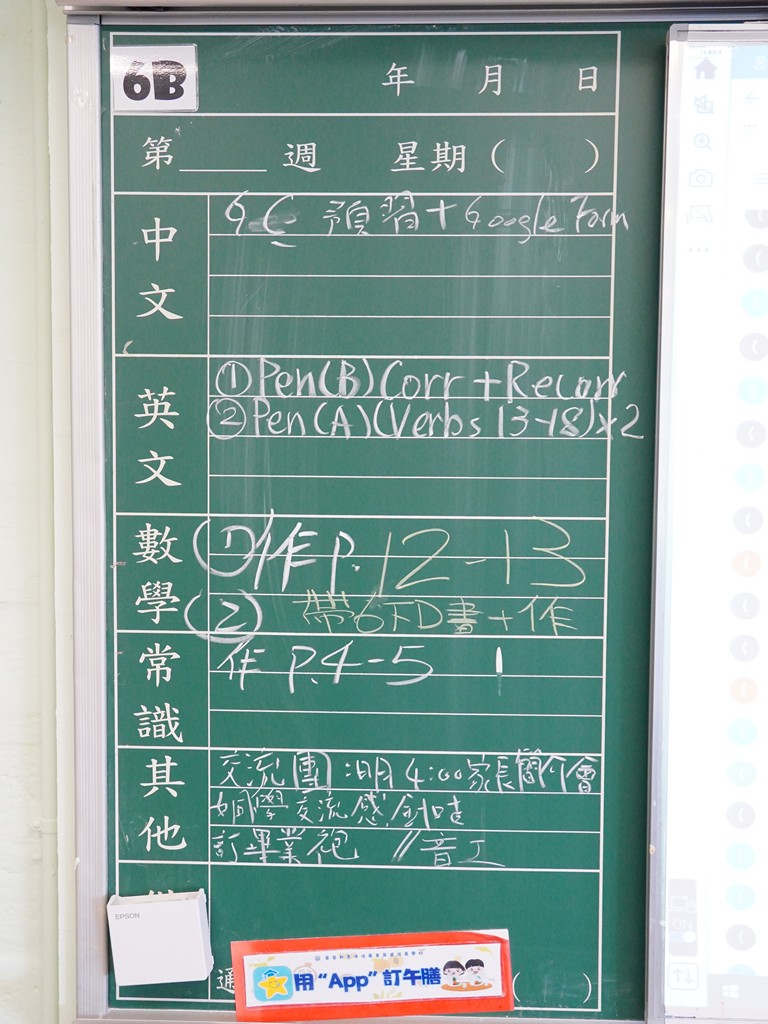 6B
年 月 日
第____週 星期( )
中文
預習+Google Form
英文
①Pen(B)Corr+Recorr
②Pen(A)(Verbs 13-18)×2
數學
①作P.12-13
② 帶6下D書+作
常識
作 P.4-5
其他
交流團:明 4:00家長簡介會
姐妹學交流感
訂畢業袍 //音工
EPSON
通
用“App”訂午膳
( )